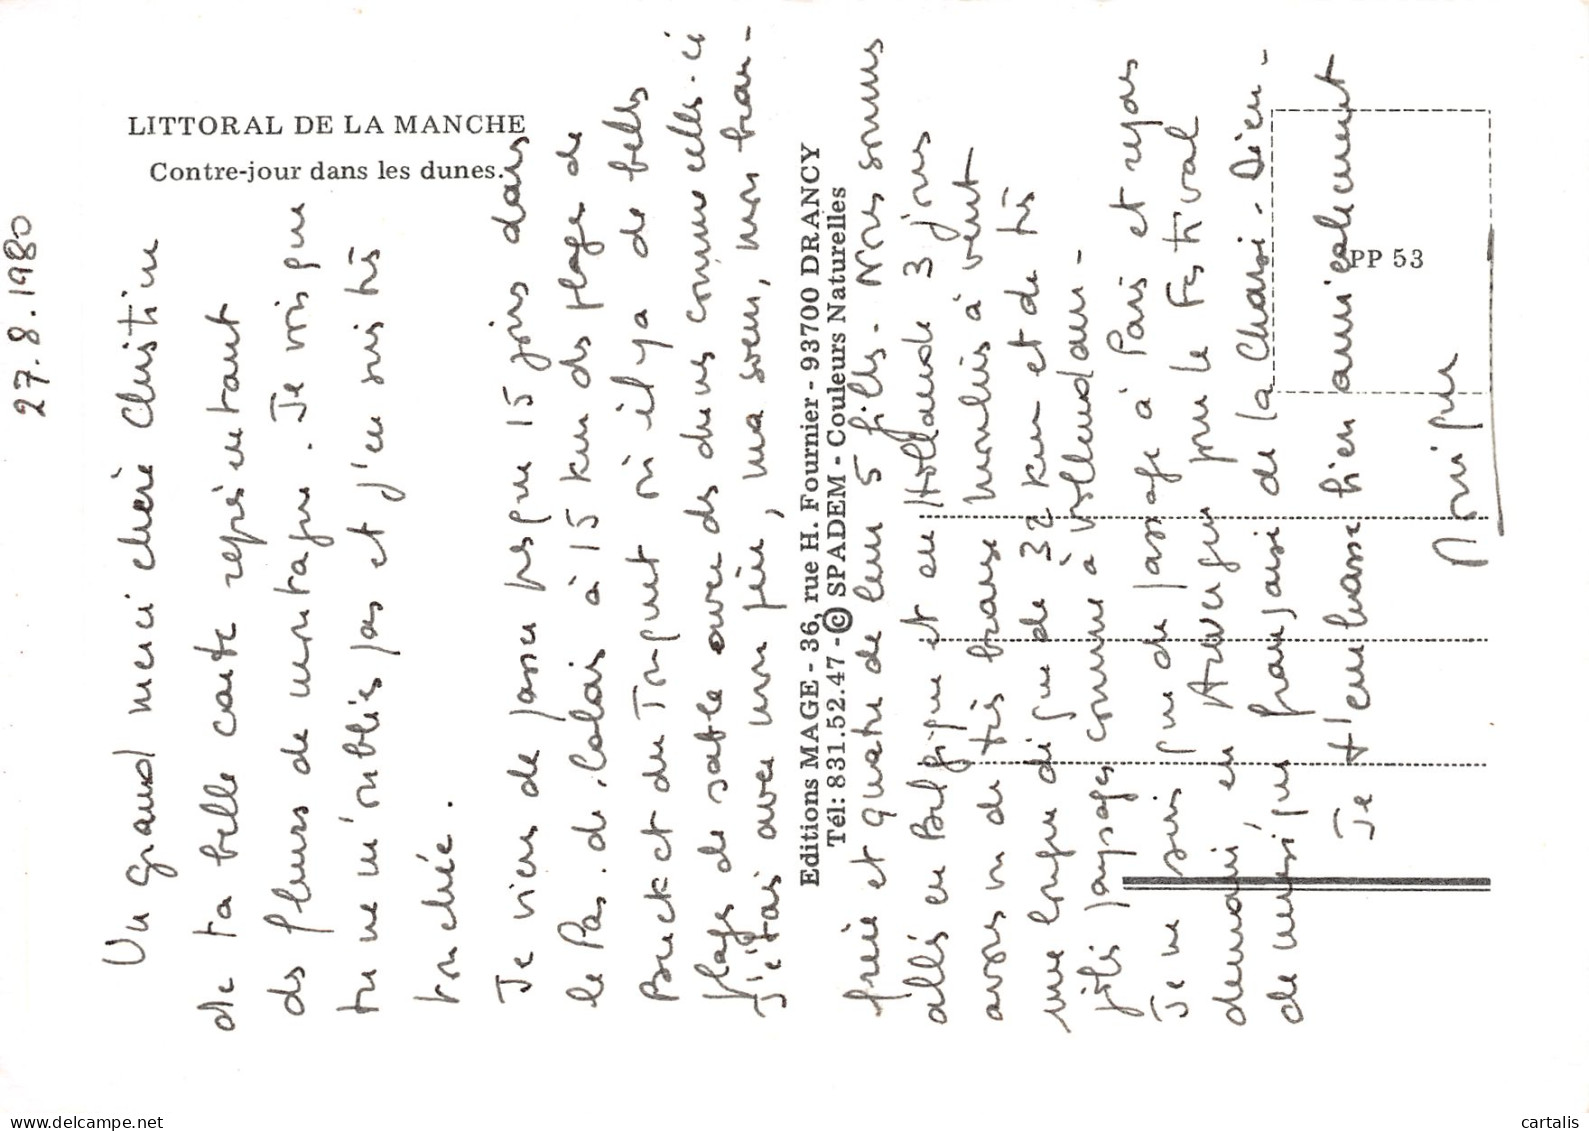 LITTORAL DE LA MANCHE
Contre-jour dans les dunes.
27.8.1980
Un grand merci chère Christine
de ta belle carte représentant
des fleurs de montagne. Je vois que
tu ne m'oublies pas et j'en suis très
touchée.
Je viens de passer presque 15 jours dans
le Pas. de. Calais à 15 km des plages de
Berck et du Touquet où il y a de belles
plages de sable avec des dunes comme celles-ci
J'étais avec mon père, ma soeur, mon beau-
frère et quatre de leur 5 filles. Nous sommes
allés en Belgique et en Hollande 3 jours
avons vu de très beaux moulins à vent
une longue digue de 32 km et de très
jolis paysages comme à Vollendam-
Je ne suis que de passage à Paris et repars
demain en Auvergne pour le Festival
de musique française de la Chaise-Dieu-
Je t'embrasse bien amicalement
Editions MAGE - 36, rue H. Fournier - 93700 DRANCY
Tél: 831.52.47 - © SPADEM - Couleurs Naturelles
PP 53
www.cartalis.net
cartalis